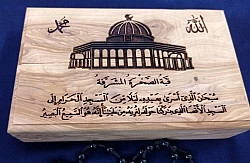 الله
محمد
قبة الصخرة المشرفة
سبحن الذي أسرى بعبده ليلا من المسجد الحرام إلى
المسجد الأقصا الذي بركنا حوله لنريه من ءايتنا إنه هو السميع البصير